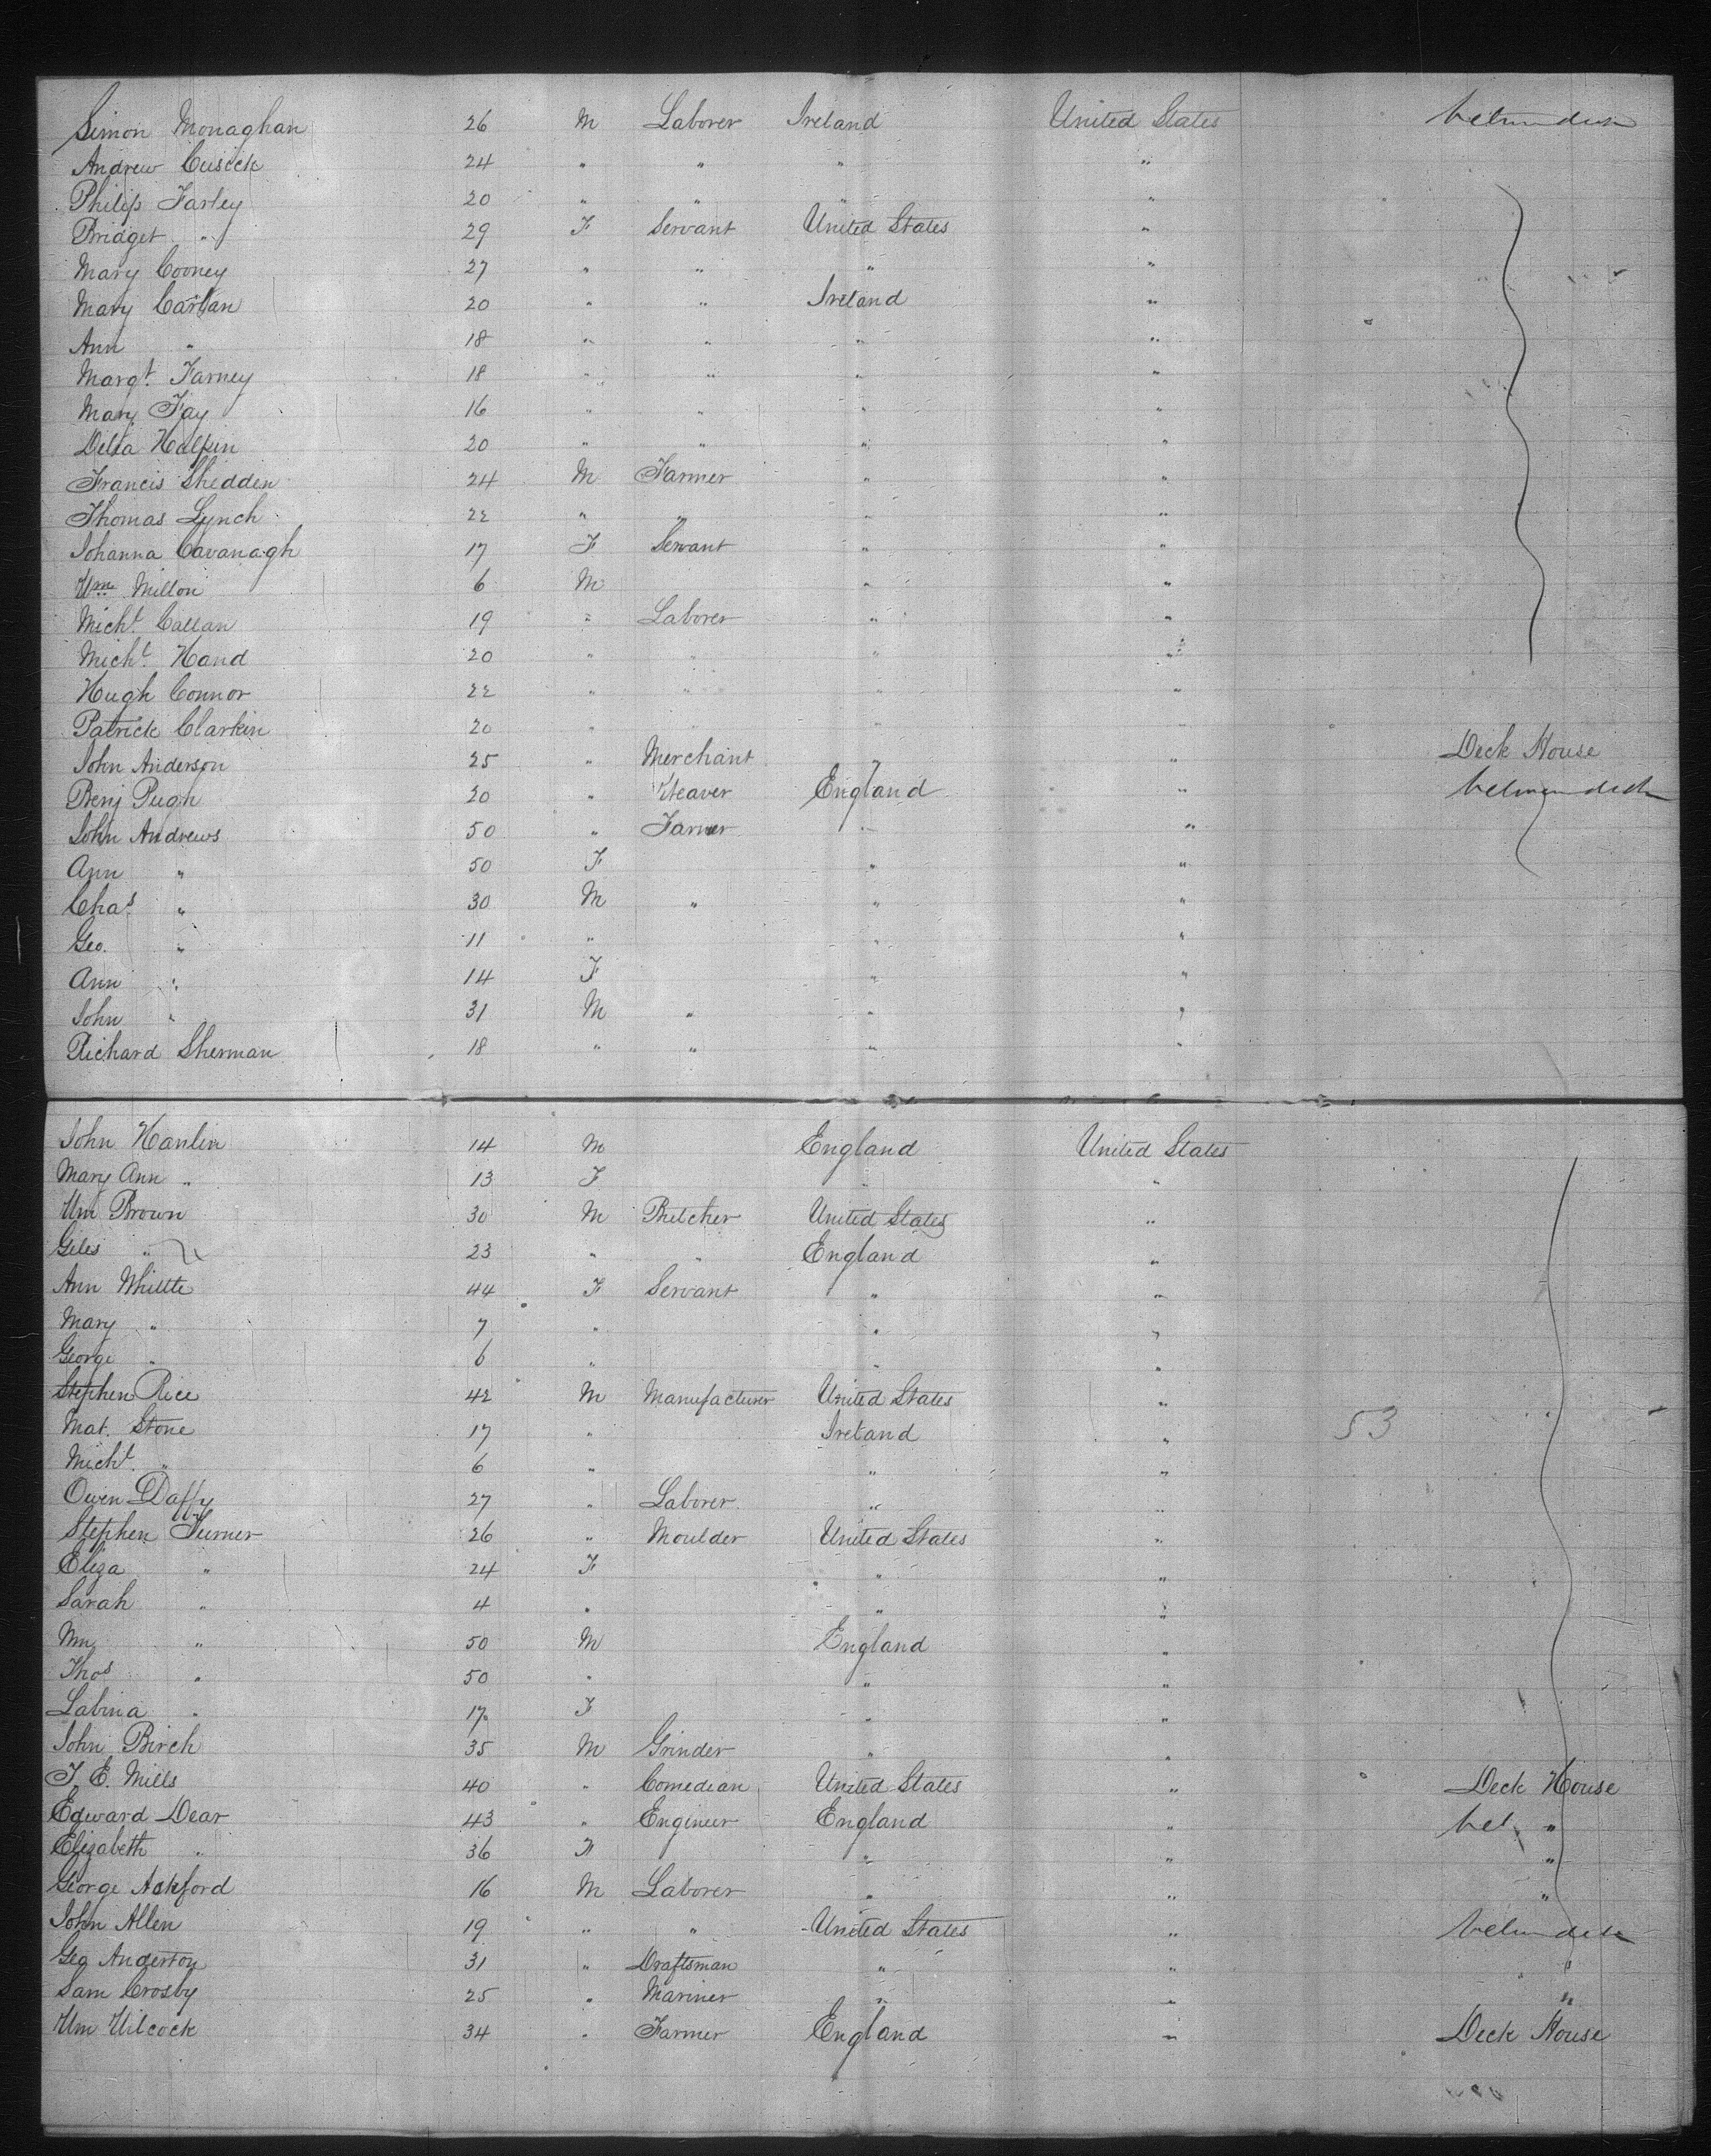 Simon Monaghan 26 M Laborer Ireland United States betwn deck
Andrew Cusick 24 " " " "
Philip Farley 20 " " " "
Bridget " 29 F Servant United States "
Mary Cooney 27 " " " "
Mary Carlan 20 " " Ireland "
Ann " 18 " " " "
Margt. Farney 18 " " " "
Mary Fay 16 " " " "
Delia Halpin 20 " " " "
Francis Shedden 24 M Farmer " "
Thomas Lynch 22 " " " "
Johanna Cavanagh 17 F Servant " "
Wm Millon 6 M " "
Michl. Callan 19 " Laborer " "
Michl. Hand 20 " " " "
Hugh Connor 22 " " " "
Patrick Clarkin 20 " " " "
John Anderson 25 " Merchant " " Deck House
Benj Pugh 20 " Weaver England " betwen deck
John Andrews 50 " Farmer " "
Ann " 50 F " "
Chas " 30 M " " "
Geo. " 11 " " "
Ann " 14 F " "
John " 31 M " " "
Richard Sherman 18 " " " "
John Hanlin 14 M England United States
Mary Ann " 13 F " "
Wm Brown 30 M Butcher United States "
Giles " 23 " " England "
Ann Whittle 44 F Servant " "
Mary " 7 " " "
George " 6 " " "
Stephen Rice 42 M Manufacturer United States "
Mat. Stone 17 " Ireland " 53
Michl. " 6 " " "
Owen Daffy 27 " Laborer " "
Stephen Turner 26 " Moulder United States "
Eliza " 24 F " "
Sarah " 4 " " "
Wm " 50 M England "
Thos " 50 " " "
Labina " 17 F " "
John Birch 35 M Grinder " "
T. E. Mills 40 " Comedian United States " Deck House
Edward Dear 43 " Engineer England " bet. "
Elizabeth " 36 F " " "
George Ackford 16 M Laborer " " "
John Allen 19 " " United States " betwn deck
Geo Anderton 31 " Draftsman " " "
Sam Crosby 25 " Mariner " " "
Wm Wilcock 34 " Farmer England " Deck House